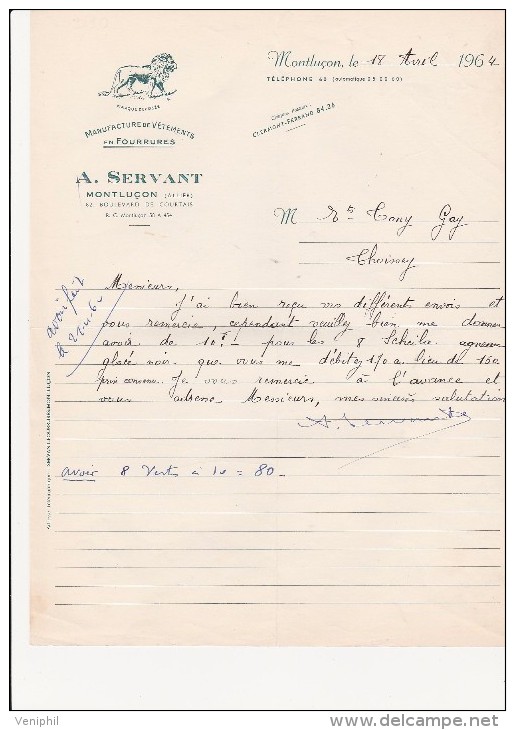 MARQUE DEPOSEE
MANUFACTURE DE VÊTEMENTS
EN FOURRURES
A. SERVANT
MONTLUÇON (ALLIER)
62, BOULEVARD DE COURTAIS
R. C. Montluçon 55 A 454
Montluçon, le 18 Avril 1964
TÉLÉPHONE 42 (automatique 05 00 60)
CLERMONT-FERRAND 84.26
M rs Tony Gay
Choissey
avoir fait
le
Messieurs,
J'ai bien reçu vos différent envois et
vous remercie, cependant veuillez bien me donner
avoir de 10 F pour les 8 agneau
glacé noir que vous me débitez 170 a lieu de 160
prix convenu. Je vous remercie à l'avance et
vous adresse Messieurs, mes sincères salutation
A. Servant
avoir 8 Verts à 10 = 80 -
Veniphil
delcampe.net